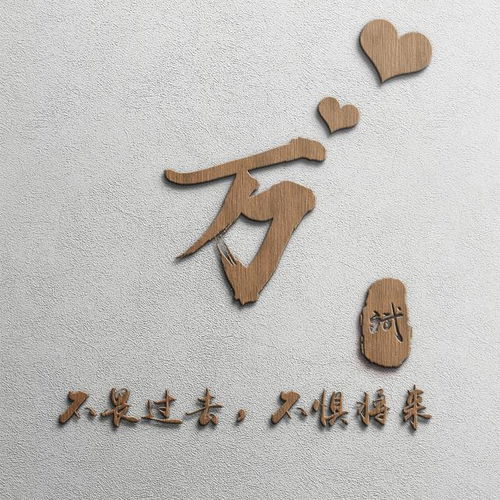 万
斌
不畏过去，不惧将来